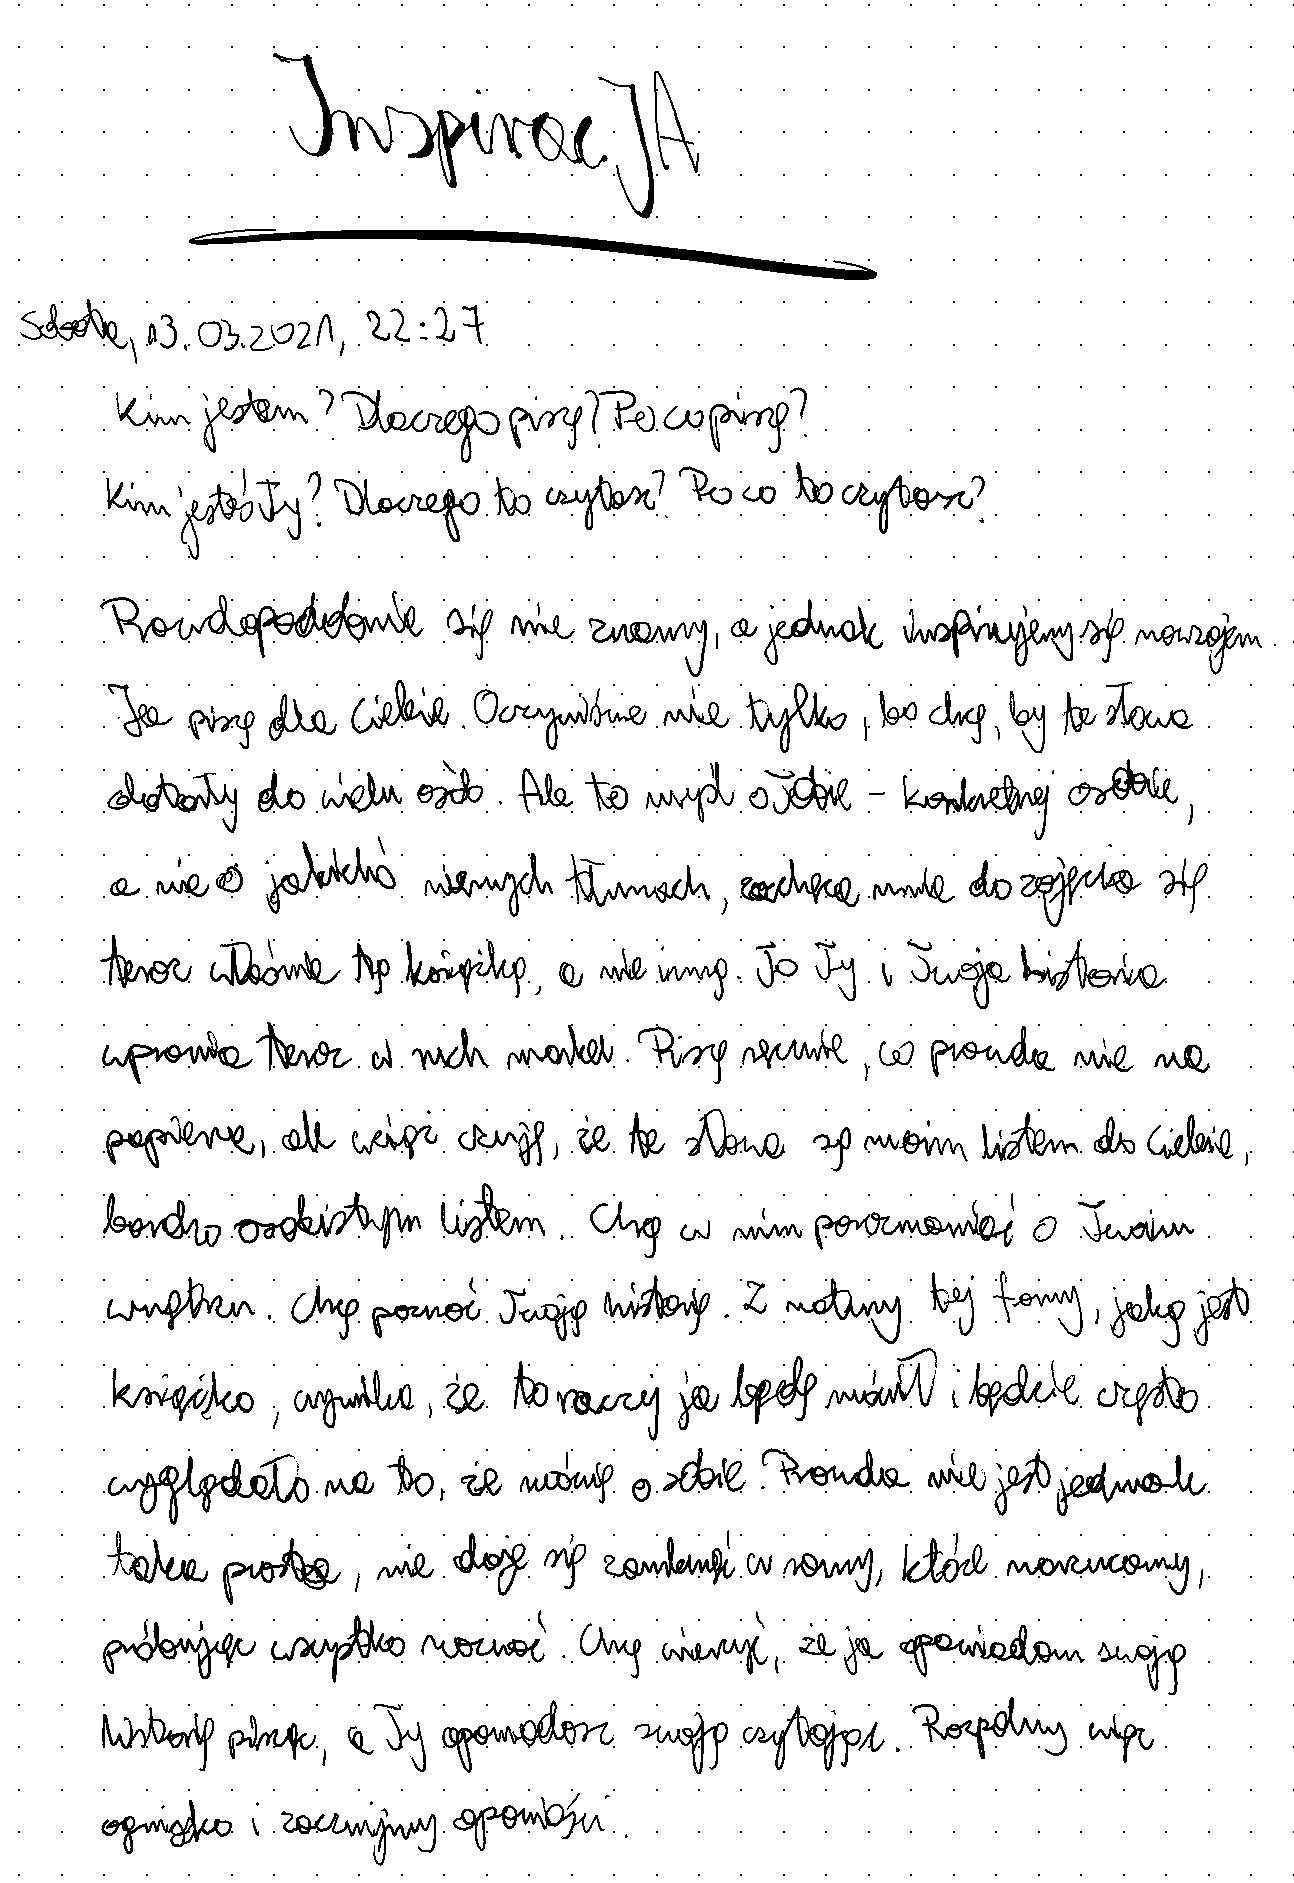 InspiracJA
Sobota, 13.03.2021, 22:27
Kim jestem? Dlaczego piszę? Po co piszę?
Kim jesteś Ty? Dlaczego to czytasz? Po co to czytasz?
Prawdopodobnie się nie znamy, a jednak inspirujemy się nawzajem.
Ja piszę dla Ciebie. Oczywiście nie tylko, bo chcę, by te słowa
dotarły do wielu osób. Ale to myśl o Tobie – konkretnej osobie,
a nie o jakichś niemych tłumach, zachęca mnie do zajęcia się
teraz właśnie tą książką, a nie inną. To Ty i Twoja historia
wprawia teraz w ruch marker. Piszę ręcznie, co prawda nie na
papierze, ale wciąż czuję, że te słowa są moim listem do Ciebie,
bardzo osobistym listem. Chcę w nim porozmawiać o Twoim
wnętrzu. Chcę poznać Twoją historię. Z natury tej formy, jaką jest
książka, wynika, że to raczej ja będę mówił i będzie często
wyglądało na to, że mówię o sobie. Prawda nie jest jednak
taka prosta, nie daje się zamknąć w ramy, które narzucamy,
próbując wszystko nazwać. Chcę wierzyć, że ja opowiadam swoją
historię pisząc, a Ty opowiadasz swoją czytając. Rozpalmy więc
ognisko i zacznijmy opowieści.